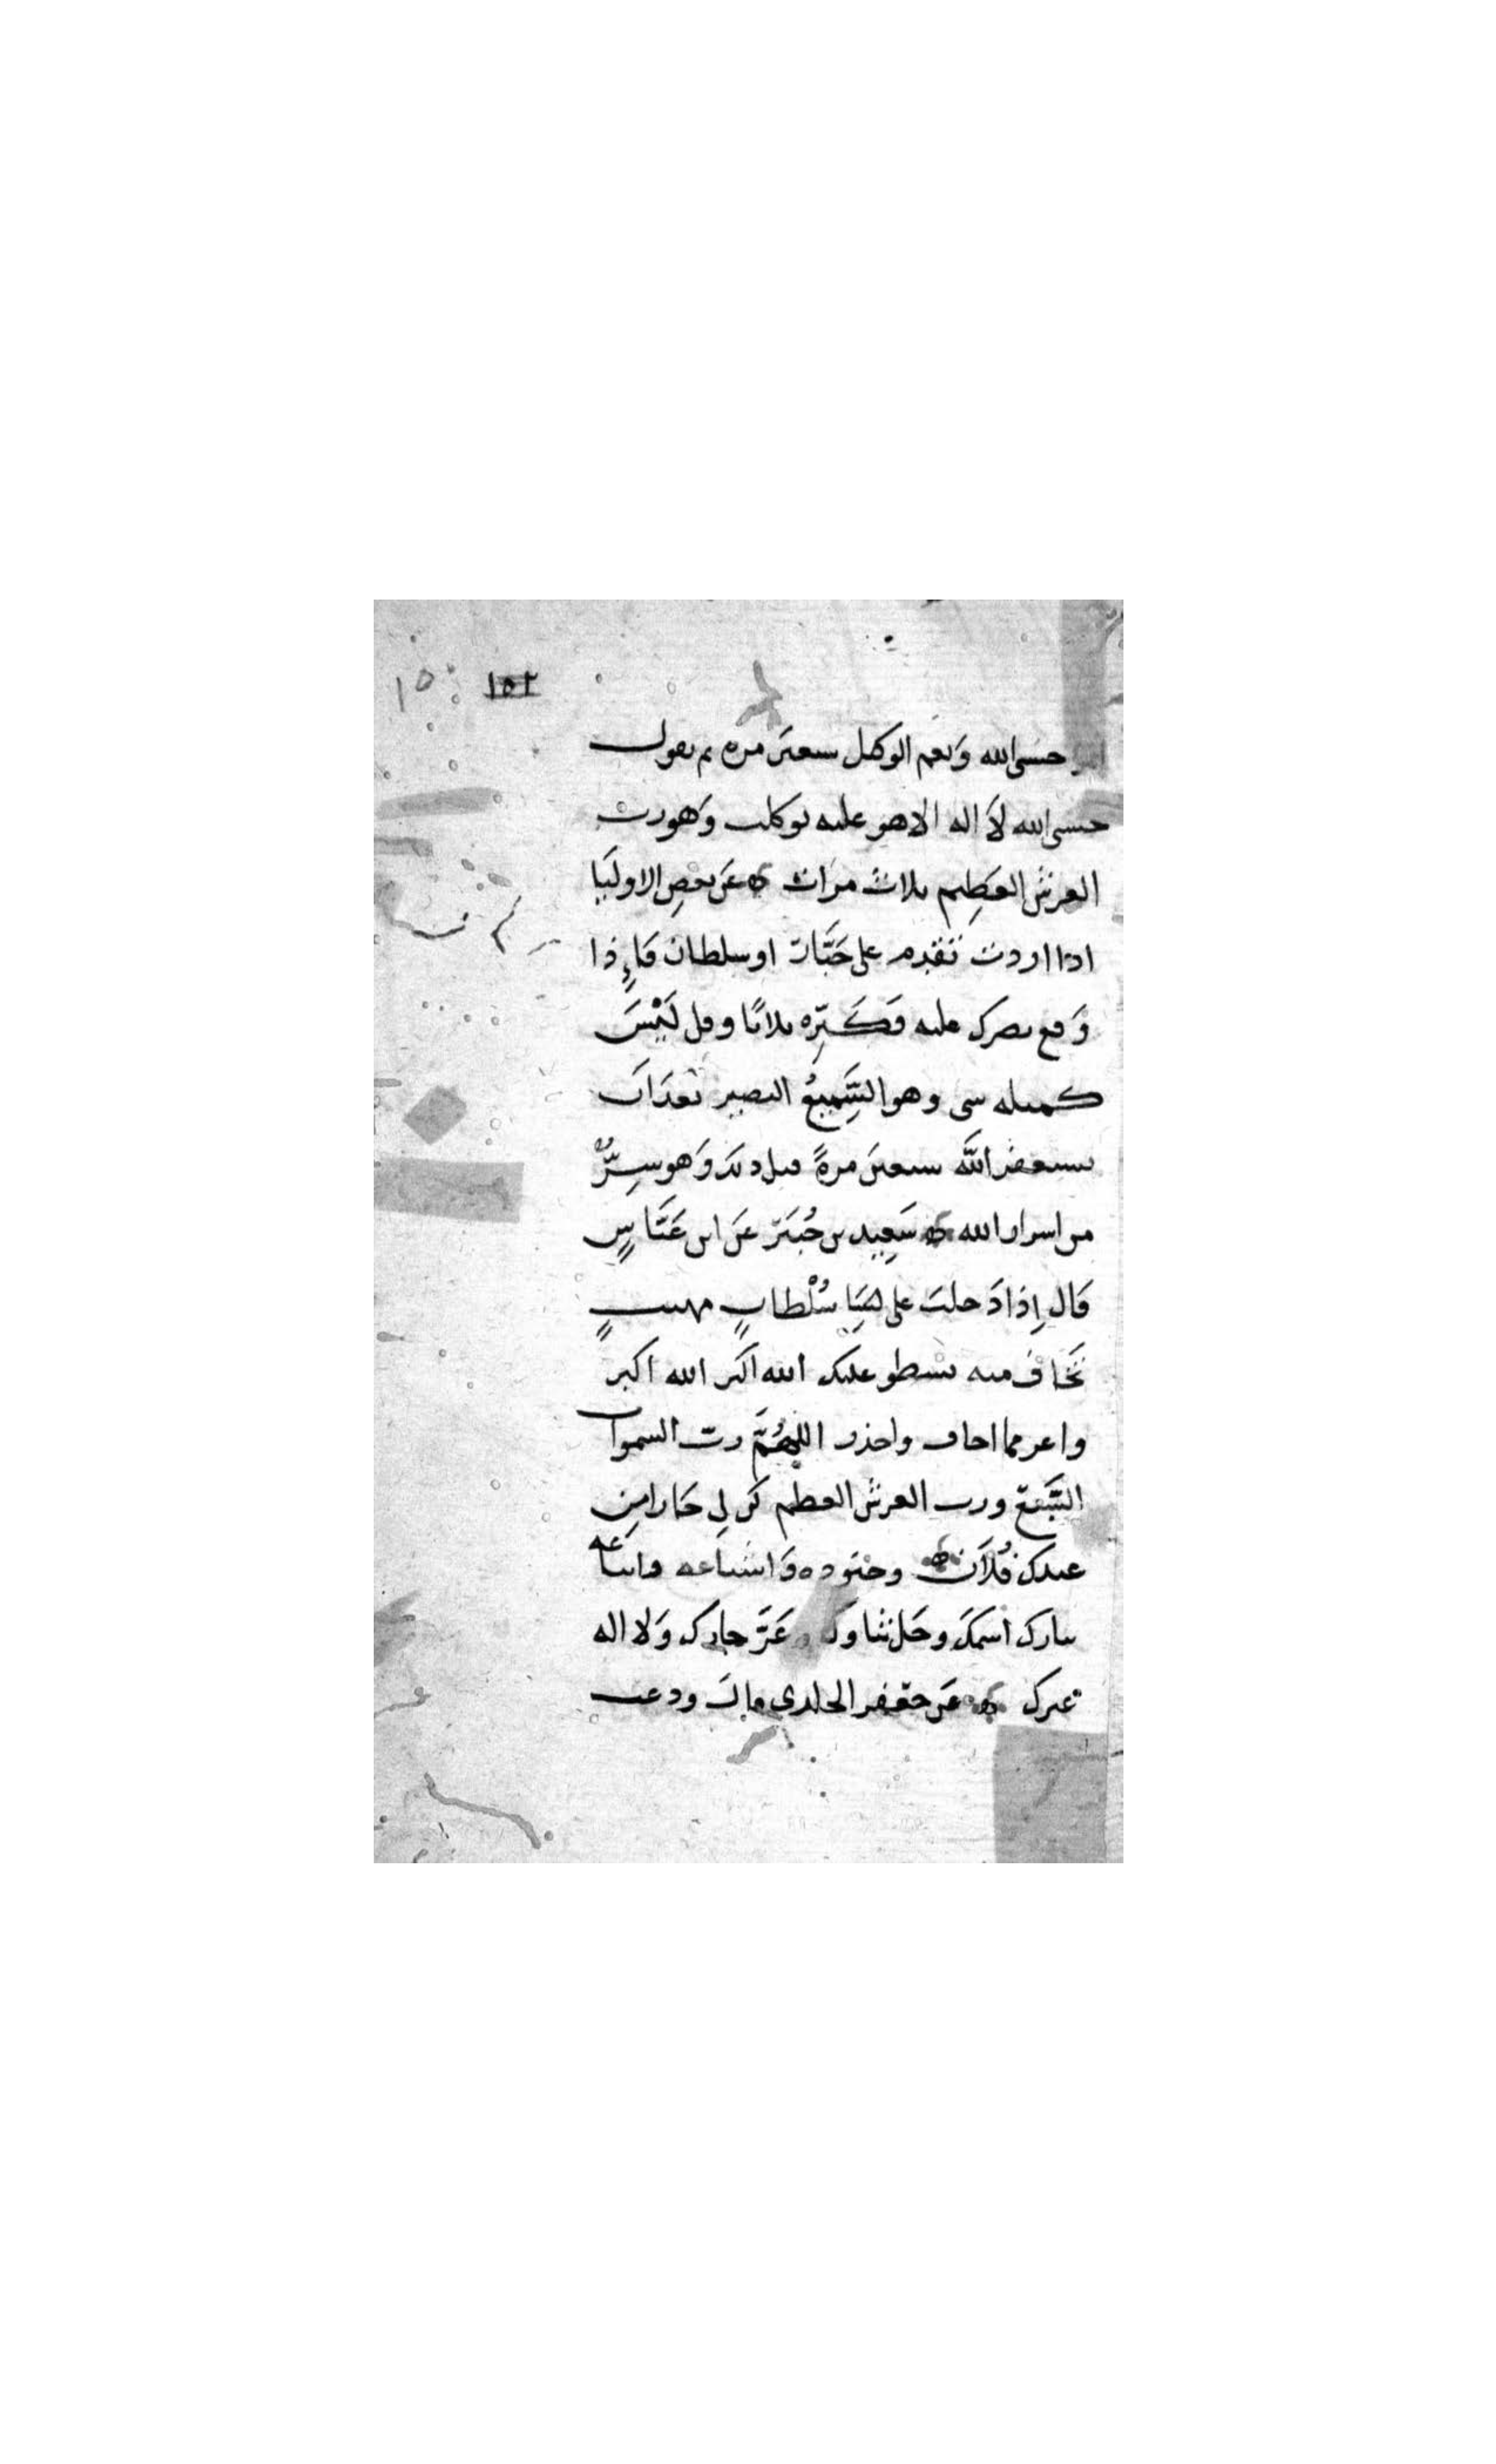 ١٥٢ ١٥
حسبي الله وَنعم الوكيل سبعين مره ثم يقول
حسبي الله لَا اله الا هو عليه توكلت وَهو رب
العرش العَظِيم ثلاث مرات ه عَن بعضِ الاوليَا
اذا اردت تقدم على جَبَّار او سلطان فَإِذا
وَقع بصرك عليه فَكَبِّره ثلاثًا وقل لَيْسَ
كمثله شي وهو السَّمِيعُ البصير بَعدَ ان
تستغفر اللَّه سبعين مرةً قبل ذلكَ وَهو سِرٌّ
من اسرار الله ه سَعِيد بن جُبَير عَن ابن عَبَّاسٍ
قَال إِذا دَخلتَ على سُلْطانٍ مهيبٍ
تَخَاف منه يسطو عليك الله اكبر الله اكبر
واعز مما اخاف واحذر اللهُمَّ ربَّ السموات
السَّبع ورب العرش العظيم كن لِي جَارا مِن
عبدك فُلَان ه وجنوده وَاشياعه واتباعه
تبارك اسمكَ وجَل ثناوك وعَزَّ جارك وَلا اله
غيرك ه عَن جعفر الخلدي قال ودعت